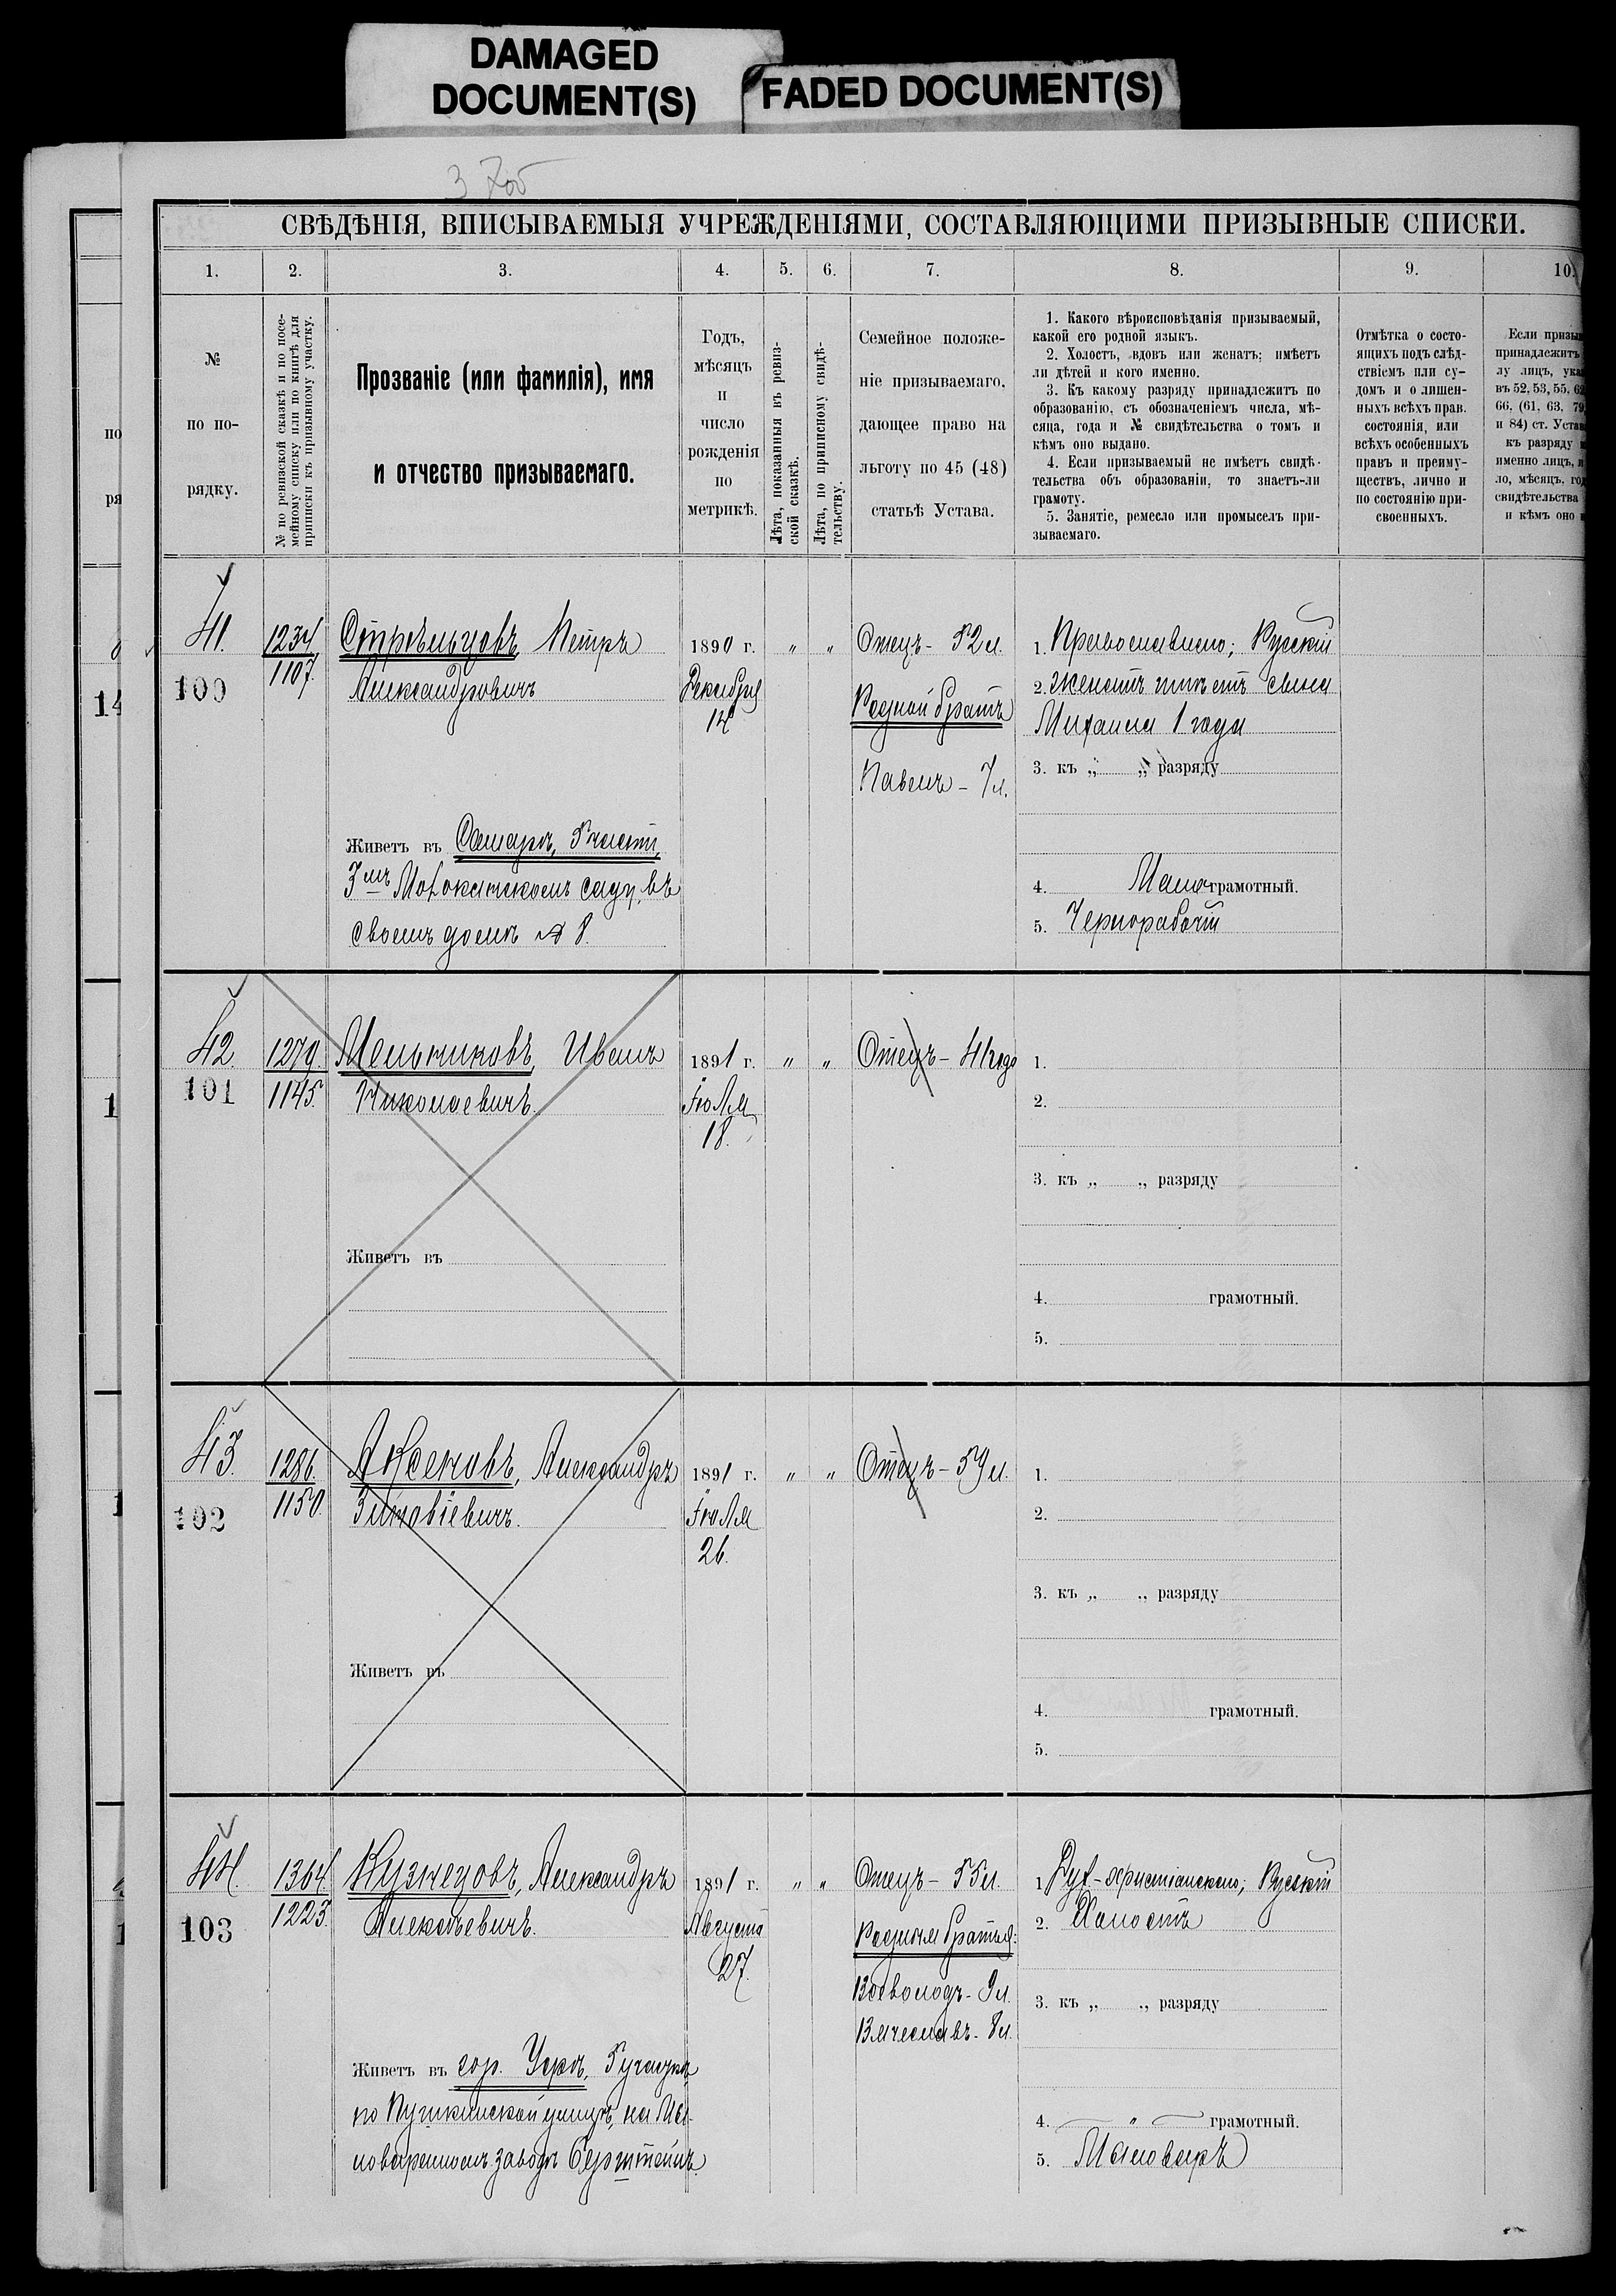 DAMAGED
DOCUMENT(S)
FADED DOCUMENT(S)
СВѢДѢНІЯ, ВПИСЫВАЕМЫЯ УЧРЕЖДЕНІЯМИ, СОСТАВЛЯЮЩИМИ ПРИЗЫВНЫЕ СПИСКИ.
1. 2. 3. 4. 5. 6. 7. 8. 9. 10.
№
по по-
рядку.
№ по ревизской сказкѣ и по посе-
мейному списку или по книгѣ для
приписки къ призывному участку.
Прозваніе (или фамилія), имя
и отчество призываемаго.
Годъ,
мѣсяцъ
и
число
рожденія
по
метрикѣ.
Лѣта, показанныя въ ревиз-
ской сказкѣ.
Лѣта, по приписному свидѣ-
тельству.
Семейное положе-
ніе призываемаго,
дающее право на
льготу по 45 (48)
статьѣ Устава.
1. Какого вѣроисповѣданія призываемый,
какой его родной языкъ.
2. Холостъ, вдовъ или женатъ; имѣетъ
ли дѣтей и кого именно.
3. Къ какому разряду принадлежитъ по
образованію, съ обозначеніемъ числа, мѣ-
сяца, года и № свидѣтельства о томъ и
кѣмъ оно выдано.
4. Если призываемый не имѣетъ свидѣ-
тельства объ образованіи, то знаетъ-ли
грамоту.
5. Занятіе, ремесло или промыселъ при-
зываемаго.
Отмѣтка о состо-
ящихъ подъ слѣд-
ствіемъ или су-
домъ и о лишен-
ныхъ всѣхъ прав.
состоянія, или
всѣхъ особенныхъ
правъ и преиму-
ществъ, лично и
по состоянію при-
своенныхъ.
Если призы
принадлежитъ
лу лицъ, ука
въ 52, 53, 55, 62
66, (61, 63, 79
и 84) ст. Устав
къ разряду
именно лицъ, и
ло, мѣсяцъ, год
свидѣтельства
и кѣмъ оно
41.
100
1234
1107.
Стрѣльцовъ, Петръ
Александровичъ
Живетъ въ Самарѣ, 5 части,
3мъ Молоканскомъ саду, въ
своемъ домѣ № 8.
1890 г.
Декабря
14
" "
Отецъ - 52 л.
Родной братъ
Павелъ - 7 л.
1. Православнаго; Русскій
2. Женатъ имѣетъ сына
Михаила 1 года
3. къ „ „ разряду
4. Малограмотный.
5. Чернорабочій
42.
101
1279.
1145.
Мельниковъ, Иванъ
Николаевичъ.
Живетъ въ
1891 г.
Іюля
18.
" "
Отецъ - 41 года
1.
2.
3. къ „ „ разряду
4. грамотный.
5.
43.
102
1286.
1150.
Аксеновъ, Александръ
Зиновіевичъ.
Живетъ въ
1891 г.
Іюля
26.
" "
Отецъ - 59 л.
1.
2.
3. къ „ „ разряду
4. грамотный.
5.
44.
103
1364.
1223.
Кузнецовъ, Александръ
Алексѣевичъ.
Живетъ въ гор. Уфѣ, 5 участкѣ
по Пушкинской улицѣ, на Мы-
ловаренномъ заводѣ Берштейнъ.
1891 г.
Августа
27.
" "
Отецъ - 55 л.
Родныя братья:
Всеволодъ - 9 л.
Вячеславъ - 8 л.
1. Дух.-христіанскаго; Русскій
2. Холостъ
3. къ „ „ разряду
4. " грамотный.
5. Мыловаръ